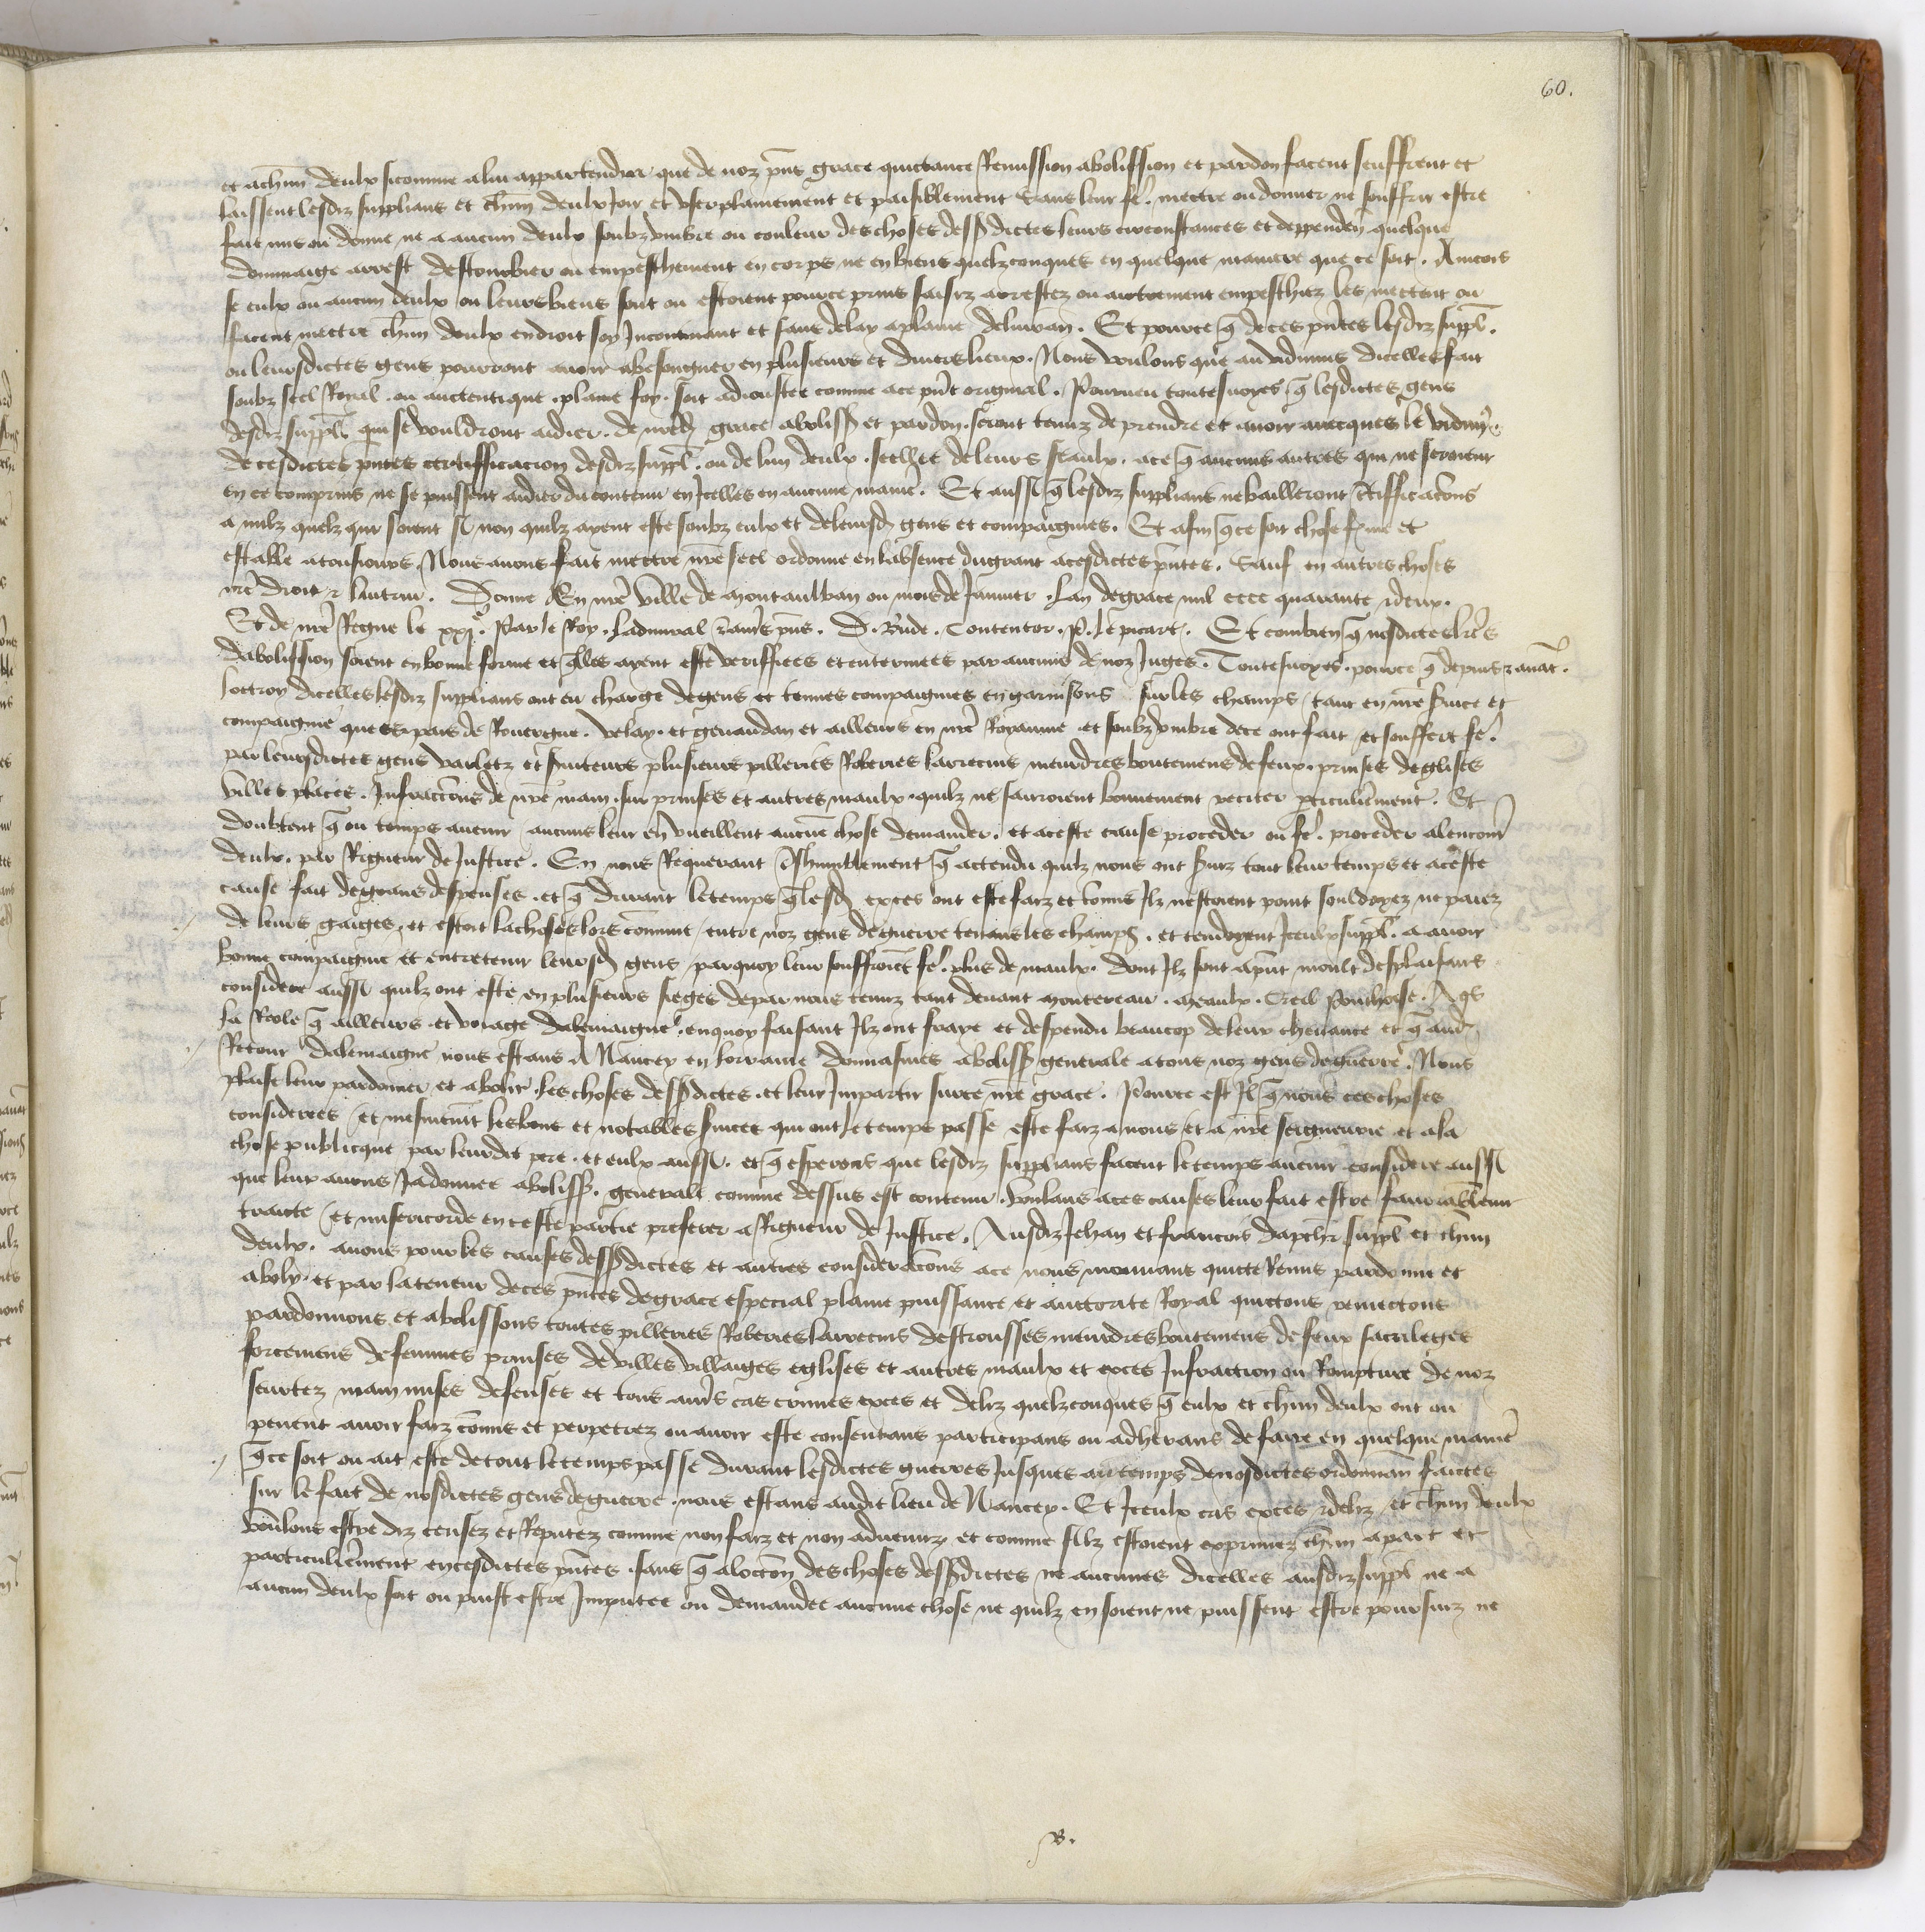 60.
et achun deulx sicomme alui appartendra que de noz pns grace quictance Remission abolission et pardon facent seuffrent et
laissent lesdiz supplians et chun deulx Joir et user plainement et paisiblement Sans leur fe. mectre ou donner ne souffrir estre
fait mis ou donne ne a aucun deulx soubz umbre ou couleur des choses dessdictes leurs circonstances et deppenden quelque
dommaige arrest destourbier ou empeschement en corps ne en biens quelzconques en quelque maniere que ce soit. Aincois
se eulx ou aucun deulx ou leurs biens sont ou estoient pource prins saisiz arrestez ou autrement empeschiez les mectent ou
facent mectre chun deulx endroit soy Incontinant et sans delay aplaine delivran. Et pource q de ces pntes lesdiz suppl.
ou leursdictes gens pourront avoir abesongner en plusieurs et divers lieux. Nous voulons que au vidimus dicelles fait
soubz seel Royal. ou auctentique. plaine foy. soit adioustee comme ace pnt original. Pourveu toutesvoyes q lesdictes gens
desdiz suppl. qui se vouldront aidier. de nred grace aboliss et pardon. seront tenuz de prendre et avoir avecques le vidim
de cesdictes pntes certifficacion desdiz suppl. ou de lun deulx. seellee de leurs seaulx. ace q aucuns autres qui ne seroient
en ce comprins ne se puissent aidier du contenu en Icelles en aucune manie. Et aussi q lesdiz supplians ne bailleront ctifficacons
a nulz quelz qui soient si non quilz ayent este soubz eulx et de leursd gens et compaignies. Et afin q ce soit chose ferme et
estable atousiours. Nous avons fait mectre nre seel ordonne en labsence du grant acesdictes pntes. Sauf en autres choses
nre droit z lautrui. Donne En nre ville de Montaulban ou mois de Janvier. Lan de grace mil cccc quarante z deux.
Et de nre Regne le xxj. Par le Roy. Ladmiral z auts pns. D. Bude. Contentor. P. Le picart. Et combien q nosdictes lres
dabolission soient en bonne forme et qlles ayent este veriffiees et enterinees par aucuns de noz Juges. Toutesvoyes. pource q depuis z avat.
loctroy dicelles lesdiz supplians ont eu charge de gens et tenues compaignies en garnisons sur les champs / tant en nre service et
compaignie que es pais de Rouergue. Velay. et gevaudan et ailleurs en nre Royaume. et soubz umbre de ce ont fait et souffert fe.
par leursdictes gens varletz et serviteurs plusieurs pilleries Roberies larrecins meurdres boutemens de feux. prinses deglises
villes places. Infraccons de nre main. sur prinses et autres maulx. quilz ne sauroient bonnement reciter pticulierement. Et
doubtent q ou temps avenir aucuns leur en vueillent aucune chose demander. et aceste cause proceder ou fe. proceder alencont
deulx. par Rigueur de Justice. En nous Requerant treshumblement q actendu quilz nous ont serviz tout leur temps et aceste
cause fait de grans despenses. et q durant le temps q lesd exces ont este faiz et comis Ilz nestoient point souldoyez ne paiez
de leurs gaiges. et estoit la chose lors comme / entre noz gens de guerre tenans les champs. et tendoyent Iceulx suppl. a avoir
bonne compaignie et entretenir leursd gens / parquoy leur souffroient fe. plus de maulx. Dont Ilz sont apnt moult desplaisans
considere aussi quilz ont este en plusieurs sieges depar nous tenuz tant devant Montereau. Meaulx. Creil Ponthoise. Ags
La Reole q ailleurs. et voiage dalemaigne. en quoy faisant Ilz ont fraye et despendu beaucop de leur chevance et q aud
Retour dalemaigne nous estans A Nancey en lorraine donnasmes aboliss generale a tous noz gens de guerre. Nous
plaise leur pardonner et abolir. les choses dessdictes. et leur Impartir surce nre grace. Pource est Il q nous ces choses
considerees / et mesmemt les bons et notables services qui ont le temps passe este faiz a nous et a nre seigneurie et ala
chose publicque par leurdit pere. et eulx aussi. et q esperons que lesdiz supplians facent le temps avenir. considere aussi
que leur avons Jadonnee aboliss. generale comme dessus est contenu. Voulans aces causes leur fait estre favorablemt
traicte / et misericorde en ceste partie preferer a Rigueur de Justice. Ausdiz Jehan et francois dapch suppl et chun
deulx. avons pour les causes dessdictes et autres consideracons ace nous mouvans quicte Remis pardonne et
aboly. et par la teneur de ces pntes de grace especial plaine puissance et auctorite Royal quictons remectons
pardonnons et abolissons toutes pilleries Roberies larrecins destrousses meurdres boutemens de feux sacrileges
forcemens de femmes prinses de villes villaiges eglises et autres maulx et exces Infraction ou Rompture de noz
seurtez main mises defenses et tous auts cas crimes exces et deliz quelzconques q eulx et chun deulx ont ou
pevent avoir faiz comis et perpetrez ou avoir este consentans participans ou adherans de faire en quelque manie
q ce soit ou ait este de tout le temps passe durant lesdictes guerres Jusques au temps de nosdictes ordonnan faictes
sur le fait de nosdictes gens de guerre. nous estans audit lieu de Nancey. Et Iceulx cas exces z deliz / et chun deulx
voulons estre diz censez et Reputez comme non faiz et non advenuz. et comme silz estoient exprimez chun apart et
particulierement en cesdictes pntes. sans q aloccon des choses dessdictes ne aucunes dicelles ausdiz suppl ne a
aucun deulx soit ou puist estre Imputee ou demandee aucune chose ne quilz en soient ne puissent estre poursuiz ne